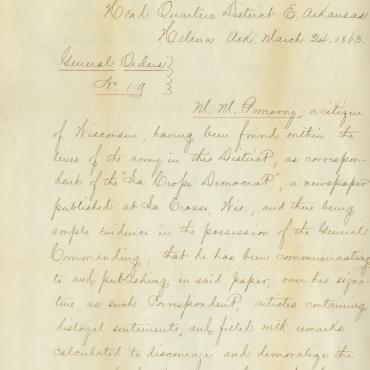 Head Quarters District E. Arkansas
Helena Ark, March 24. 1863.
General Orders
No 19
M. M. Pomeroy, a citizen
of Wisconsin, having been found within the
lines of the army in this District, as correspon-
dent of the "La Crosse Democrat", a newspaper
published at La Crosse, Wis., and there being
ample evidence in the possession of the General
Commanding, that he has been communicating
to and publishing in said paper, over his signa-
ture as such Correspondent, articles containing
disloyal sentiments, and filled with remarks
calculated to discourage and demoralize the